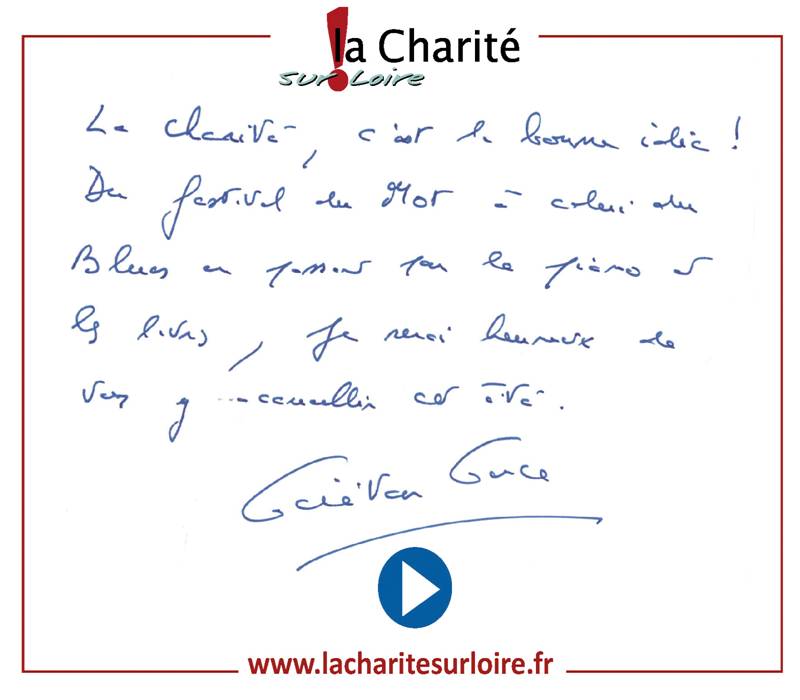 la Charité
sur Loire
La Charité, c'est la bonne idée !
Du festival du Mot à celui du
Blues en passant par le piano et
les livres, je serai heureux de
vous y accueillir cet été.
Gaëtan Gorce
www.lacharitesurloire.fr